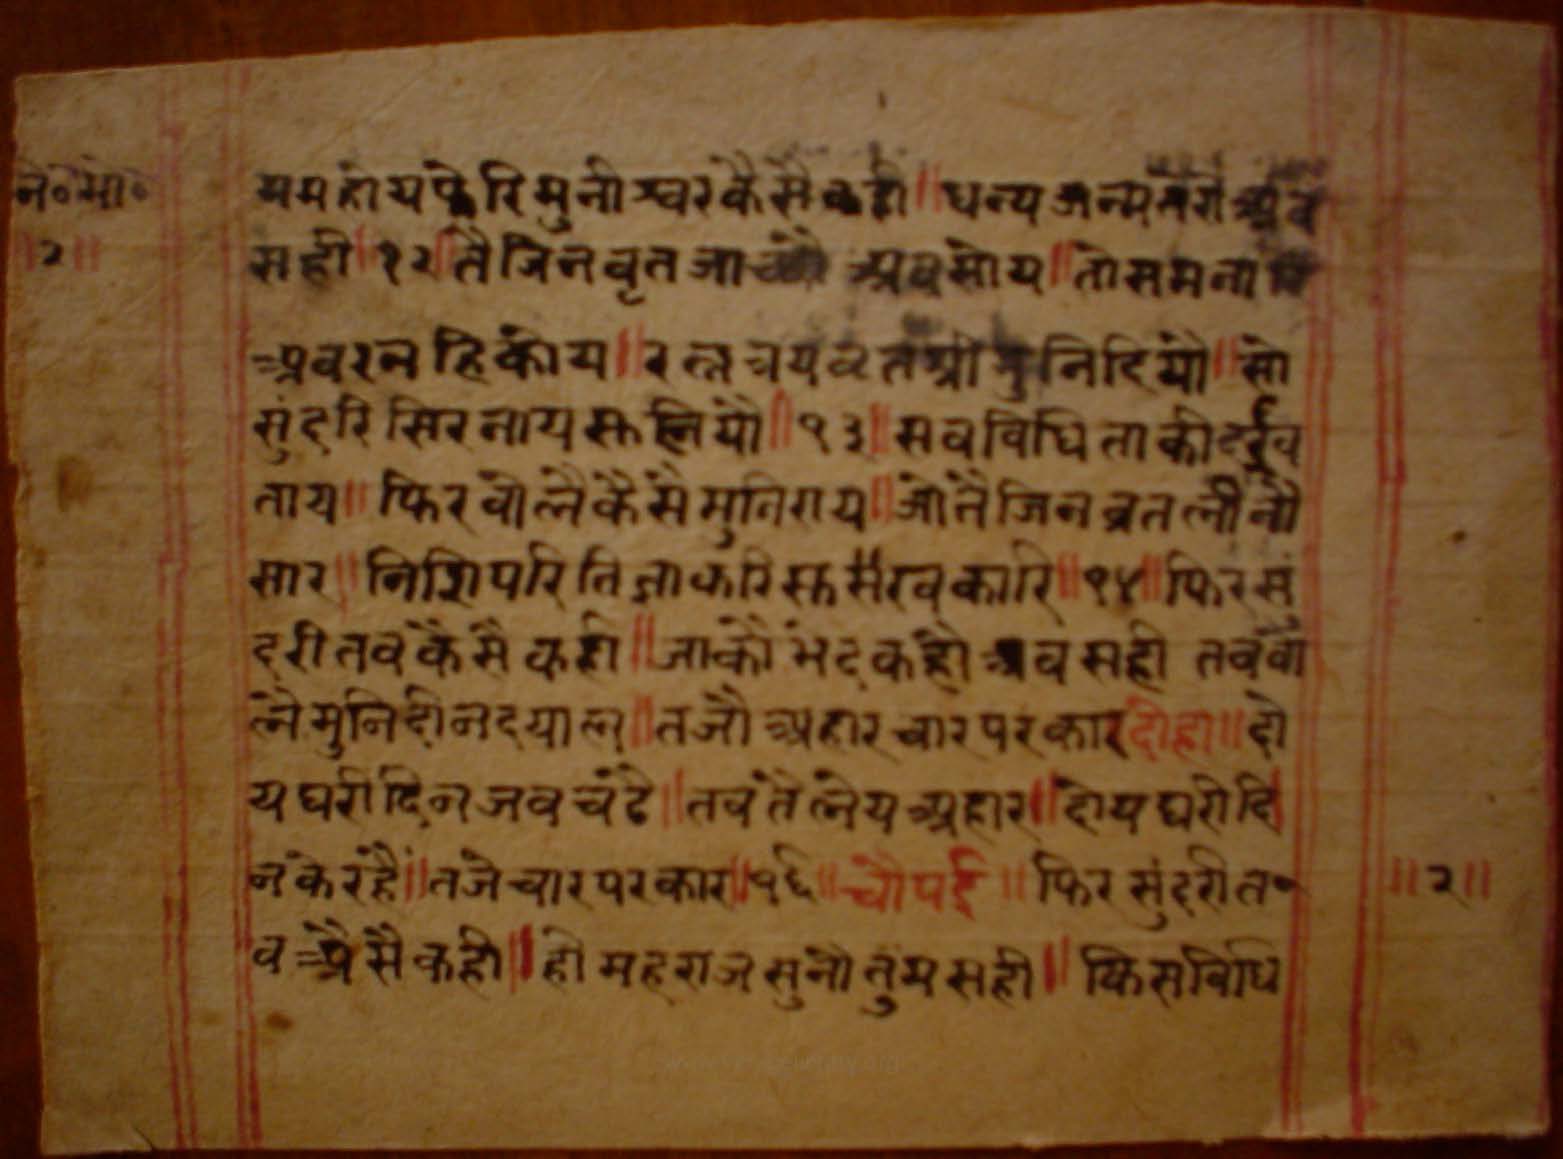 नै॰भो॰
॥२॥
यमहोयफेरिमुनीश्वरकैसैकही॥धन्यजन्मतेरौअब
सही॥१२॥तैजिनवृतजाच्यौ अबसोय॥तोसमना
अवरनहिकोय॥रत्नत्रयवरतश्रीमुनिदियौ॥सो
सुंदरिसिरनाय लियौ॥१३॥सवविधिताकीदईव
ताय॥फिरवोलैकैसैमुनिराय॥जोतैजिनव्रतलीनौ
सार॥ ॥१४॥फिरसुं
दरीतवकैसैकही॥जाकौभेदकहोअवसही तववो
लेमुनिदीनदयाल॥तजौअहारचारपरकारदोहा॥दो
यघरीदिनजवचढै॥तवतैलेयअहार॥दोयघरीदि
नकेरहै॥तजेचारपरकार॥१६॥चौपई॥फिरसुंदरीत॰
वअैसैकही॥होमहराजसुनौतुमसही॥किसविधि
॥२॥